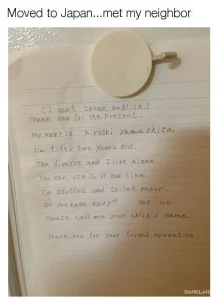 Moved to Japan...met my neighbor
(I can't speak english)
Thank you for the present.
My name is hiroshi yamashita
I'm fifty two years old.
The divorce and I live alone.
You can use it if you like
I'm stuffed and toilet paper.
Do you have navy? Yes No
Please call me your child's name
Thank you for your friend operation
DANKLAND